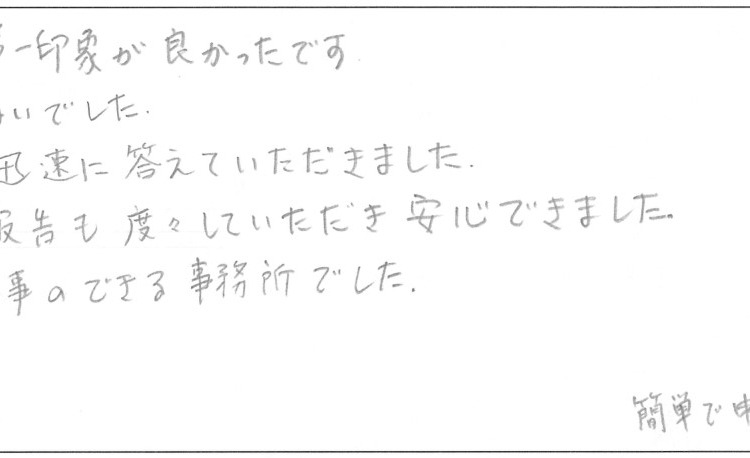 第一印象が良かったです
いでした.
迅速に答えていただきました.
報告も度々していただき安心できました.
事のできる事務所でした.
簡単で申